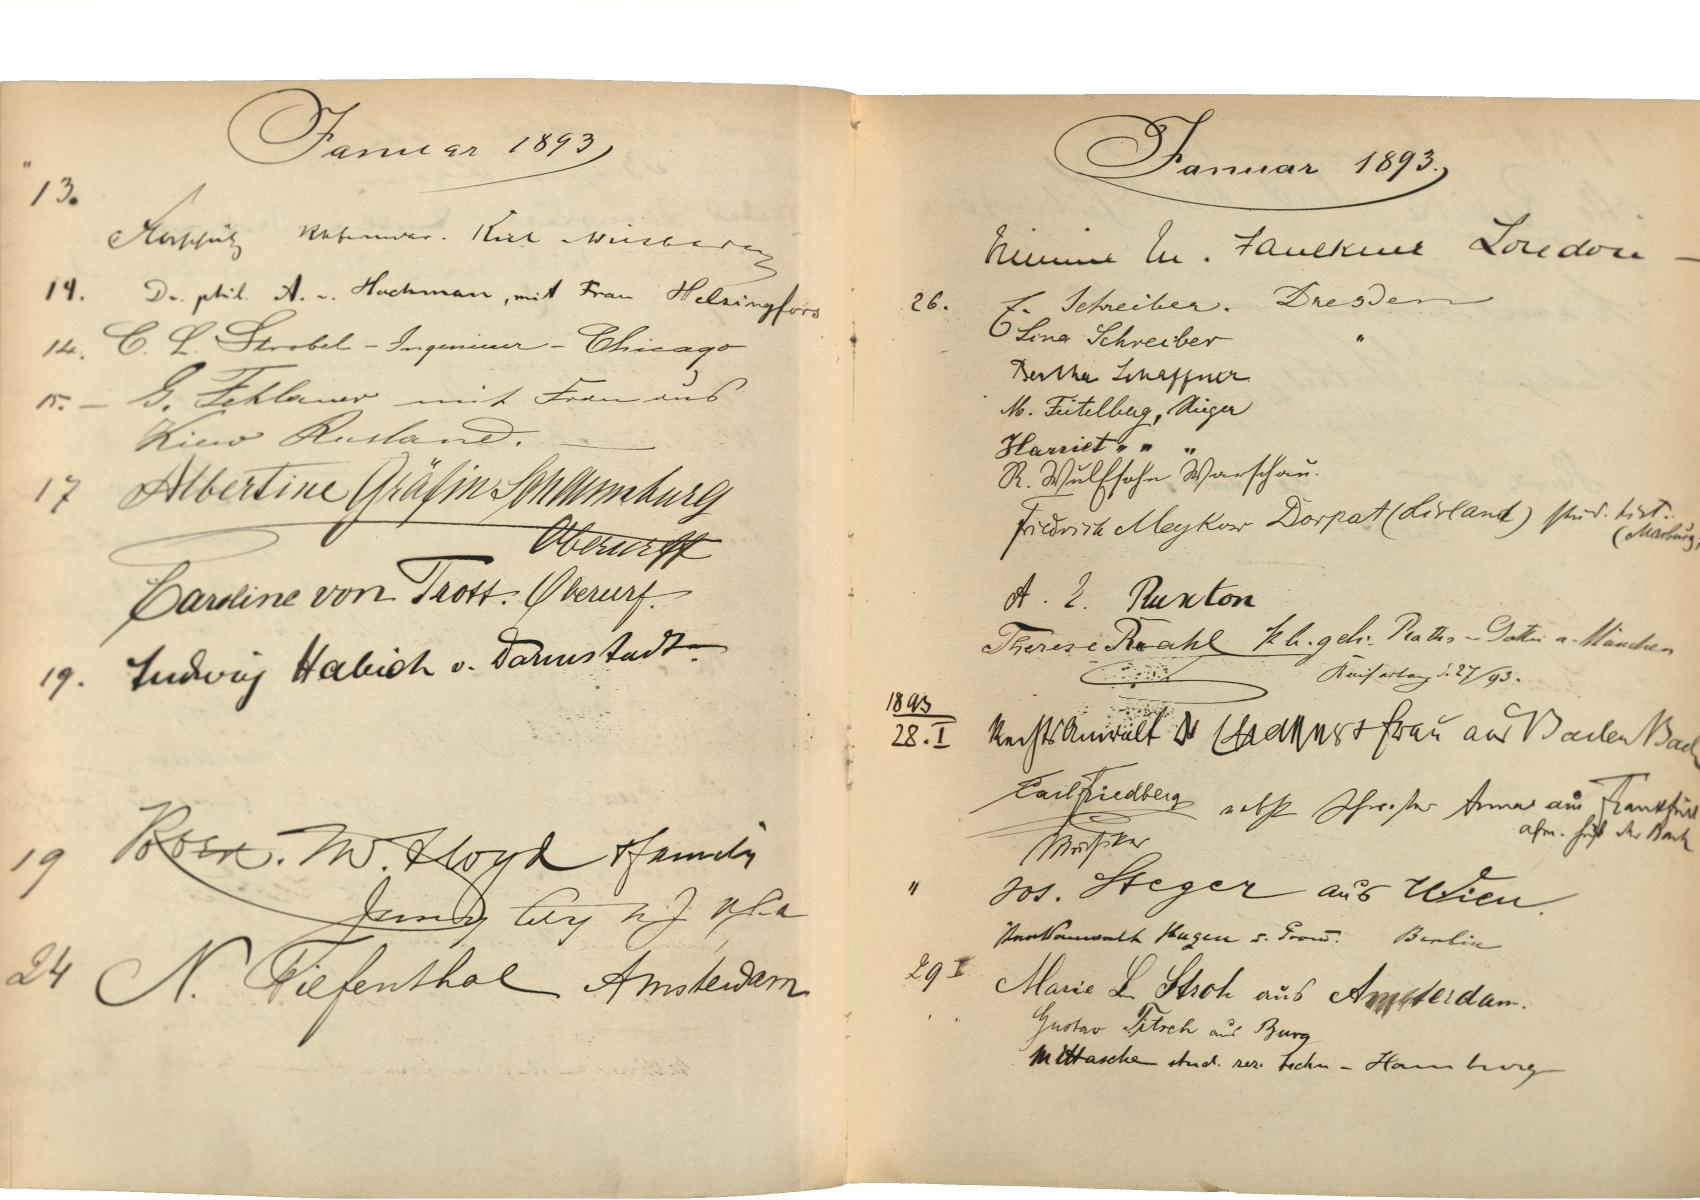 Januar 1893
" 13.
14. Dr. phil. A. v. Hackman, mit Frau Helsingfors
14. C. L. Strobel - Ingenieur - Chicago
15. - G. Fehlauer mit Frau aus
Kiew Rusland.
17 Albertine Gräfin Schaumburg
Oberurff
Caroline von Trott. Oberurf.
19. Ludwig Habich v. Darmstadt.
19 W. Lloyd & family
Jersey City N J USA
24 N. Tiefenthal Amsterdam
Januar 1893.
M. Faulkner London
26. Schreiber. Dresden
Lina Schreiber "
Bertha Schaffner
M. Feitelberg, Riga
Harriet " " "
R. Wulfsohn Warschau.
Friedrich Meykow Dorpat (Livland) stud. hist.
(Marburg)
A. E. Ruxton
Therese Kraht geh. Raths - Gattin a. München
27/93.
1893
28. I Rechtsanwalt Dr & Frau aus Baden Bad
Carl Friedberg nebst Schwester Anna aus Frankfurt
Musiker
" Jos. Steger aus Wien.
Hagen Berlin
29 I Marie L. Stroh aus Amsterdam.
Gustav Titsch aus Burg
Mittasche stud. rer. techn - Hamburg